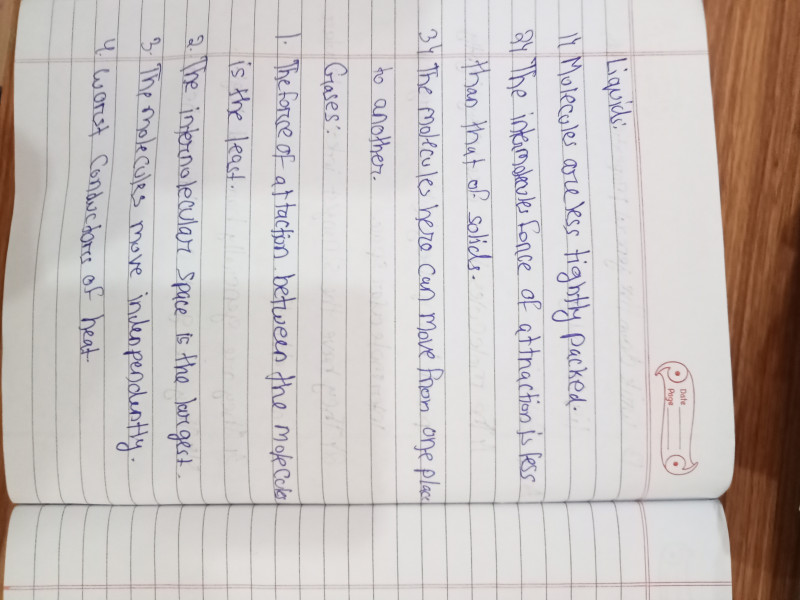 Date
Page
Liquids:
1) Molecules are less tightly packed.
2) The intermolecules force of attraction is less
than that of solids.
3) The molecules here can move from one place
to another.
Gases:
1. The force of attaction between the molecules
is the least.
2. The intermolecular space is the largest.
3. The molecules move indenpendently.
4. Worst Conductors of heat